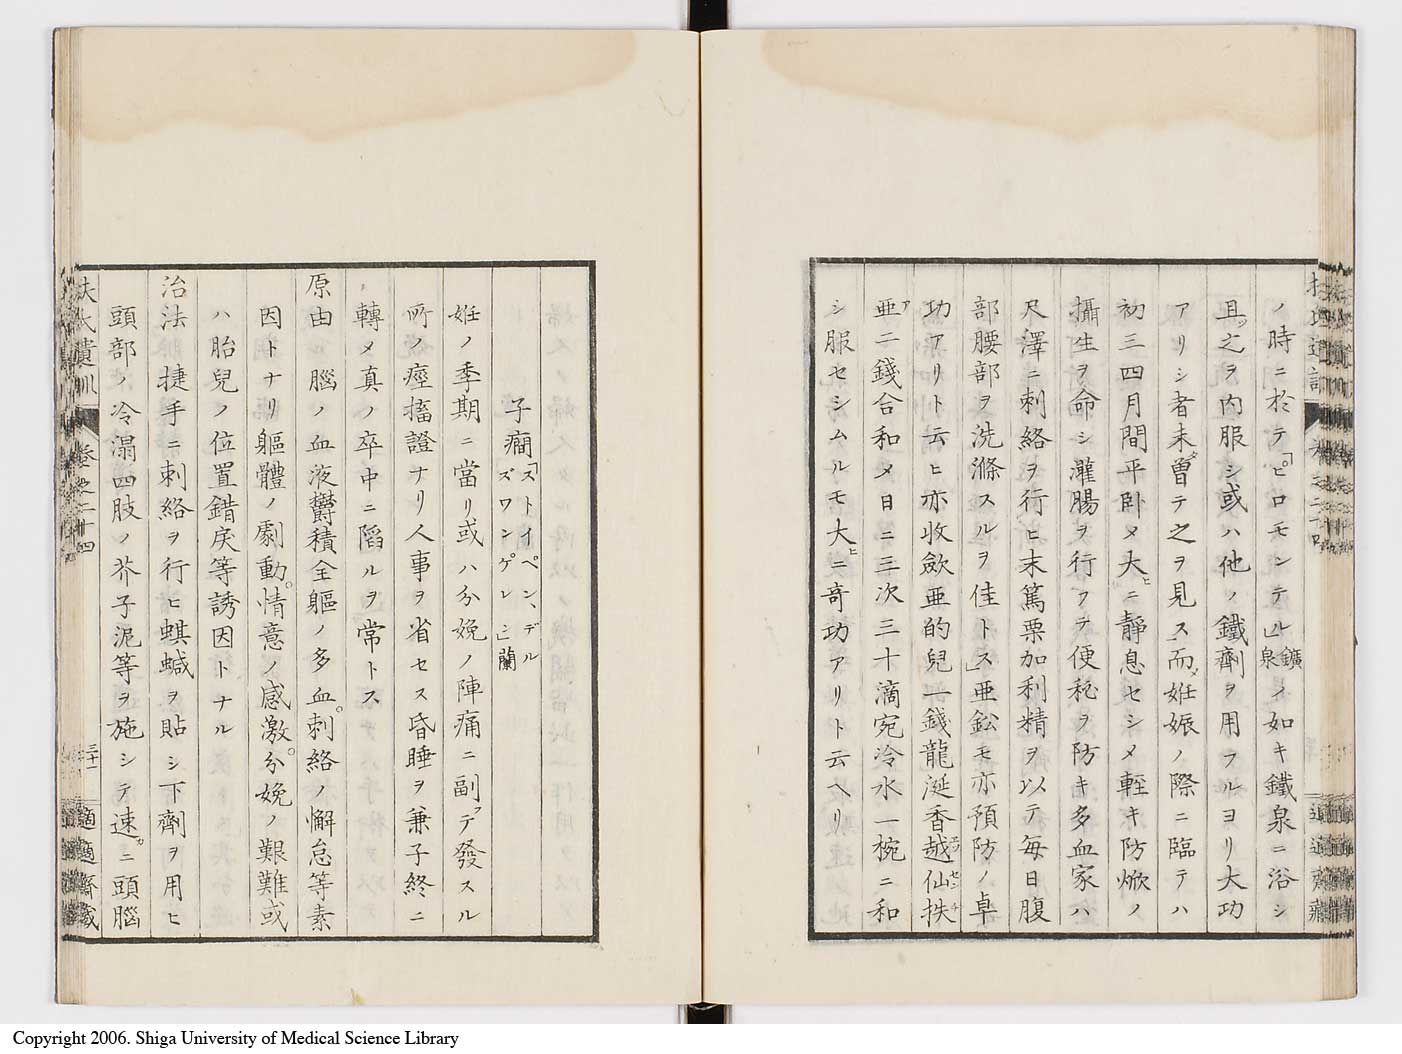 ノ時ニ於テ「ピロモンテル」鑛泉ノ如キ鐵泉ニ浴シ
且ツ之ヲ内服シ或ハ他ノ鐵劑ヲ用フルヨリ大功
アリシ者未曽テ之ヲ見ス」而メ姙娠ノ際ニ臨テハ
初三四月間平卧メ大ヒニ静息セシメ軽キ防焮ノ
攝生ヲ命シ灌腸ヲ行フテ便秘ヲ防キ多血家ハ
尺澤ニ刺絡ヲ行ヒ末篤栗加利精ヲ以テ毎日腹
部腰部ヲ洗滌スルヲ佳トス」亜鈆モ亦預防ノ卓
功アリト云ヒ亦收歛亜的兒一錢龍涎香越仙扶
亜二錢合和メ日ニ三次三十滴宛冷水一椀ニ和
シ服セシムルモ大ヒニ奇功アリト云ヘリ
子癎「ストイペン、デル
ズワンゲレン」蘭
姙ノ季期ニ當リ或ハ分娩ノ陣痛ニ副フテ發スル
所ノ痙搐證ナリ人事ヲ省セス昏睡ヲ兼子終ニ
轉メ真ノ卒中ニ陷ルヲ常トス
原由腦ノ血液欝積全軀ノ多血。刺絡ノ懈怠等素
因トナリ軀體ノ劇動。情意ノ感激。分娩ノ艱難或
ハ胎兒ノ位置錯戾等誘因トナル
治法捷手ニ刺絡ヲ行ヒ蜞鍼ヲ貼シ下劑ヲ用ヒ
頭部ノ冷溻四肢ノ芥子泥等ヲ施シテ速カニ頭腦
扶氏遺訓 卷之二十四 三十一 適適齋藏
Copyright 2006. Shiga University of Medical Science Library